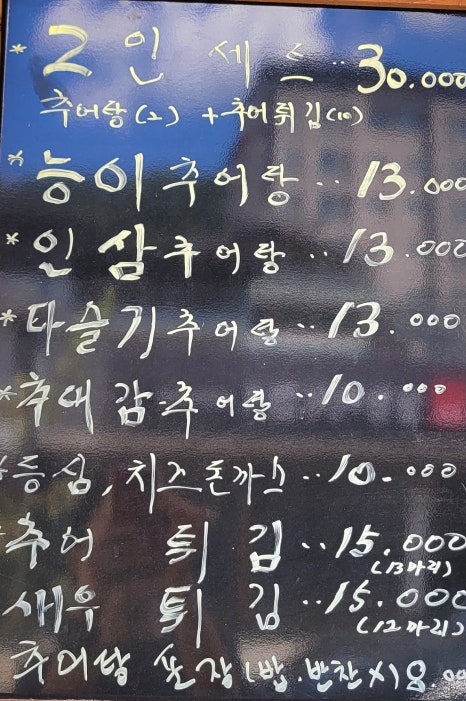 * 2인 세트 ·· 30.000
추어탕(2) + 추어튀김(10)
* 능이추어탕 ·· 13.000
* 인삼추어탕 ·· 13.000
* 다슬기추어탕 ·· 13.000
* 추대감·추어탕 ·· 10.000
* 등심, 치즈돈까스 ·· 10.000
* 추어 튀김 ·· 15.000
(13마리)
새우 튀김 ·· 15.000
(12마리)
추어탕 포장(밥·반찬X) 8.00